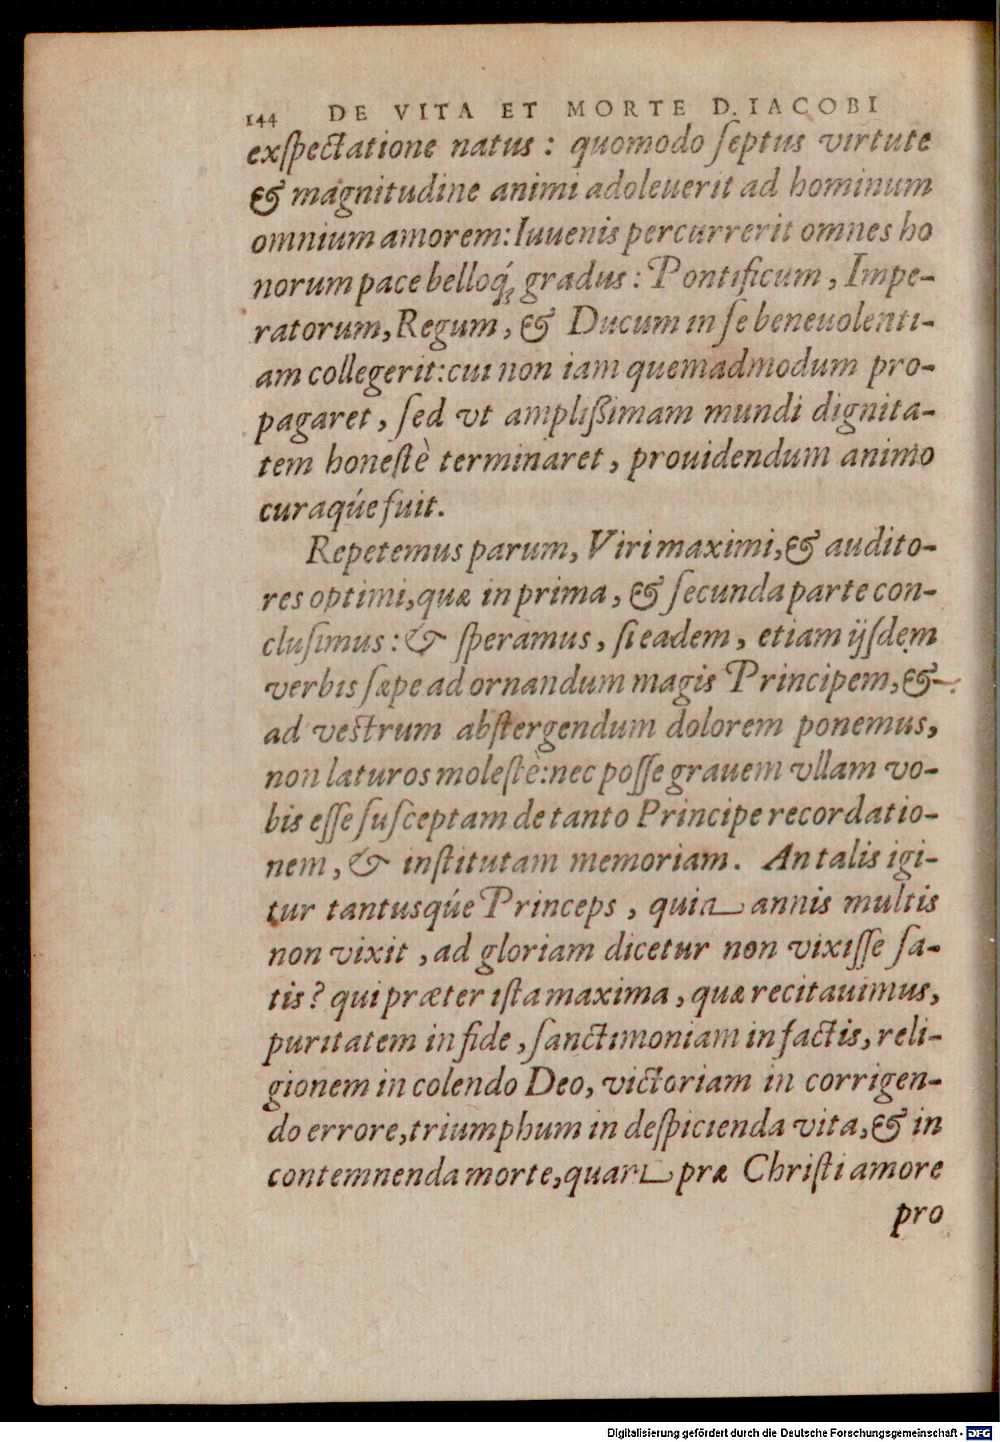 144 DE VITA ET MORTE D. IACOBI
exſpectatione natus : quomodo ſeptus virtute
& magnitudine animi adoleuerit ad hominum
omnium amorem: Iuuenis percurrerit omnes ho
norum pace belloq́; gradus : Pontificum , Impe-
ratorum, Regum , & Ducum in ſe beneuolenti-
am collegerit: cui non iam quemadmodum pro-
pagaret , ſed vt ampliſsimam mundi dignita-
tem honeſtè terminaret , prouidendum animo
curaqúe fuit.
Repetemus parum, Viri maximi, & audito-
res optimi, quæ in prima , & ſecunda parte con-
cluſimus : & ſperamus , ſi eadem , etiam ijſdem
verbis ſæpe ad ornandum magis Principem, &
ad vestrum abſtergendum dolorem ponemus,
non laturos moleſtè: nec poſſe grauem vllam vo-
bis eſſe ſuſceptam de tanto Principe recordatio-
nem , & inſtitutam memoriam. An talis igi-
tur tantusqúe Princeps , quia annis multis
non vixit , ad gloriam dicetur non vixiſſe ſa-
tis ? qui præter iſta maxima , quæ recitauimus,
puritatem in fide , ſanctimoniam in factis, reli-
gionem in colendo Deo, victoriam in corrigen-
do errore, triumphum in deſpicienda vita, & in
contemnenda morte, quam præ Chriſti amore
pro
Digitalisierung gefördert durch die Deutsche Forschungsgemeinschaft - DFG